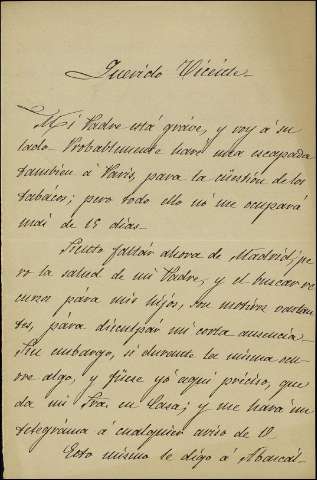 Querido Vicente
Mi Padre está gráve, y voy á su
lado Probablemente haré una escapada
tambien á Paris, para la cüestión de los
tabácos; pero todo ello nó me ocupará
mas de 15 dias.
Siento faltár ahora de Madrid; pe
ro la salud de mi Padre, y el buscar re
cursos pára mis hijos, son motivos bastan
tes, pára disculpár mi corta ausencia.
Sin embargo, si durante la misma ocu
rre algo, y fuese yó aquí preciso, que
da mi Sra. en Casa; y me hará un
telegráma á cualquier aviso de V.
Esto mismo le digo á Abascál-